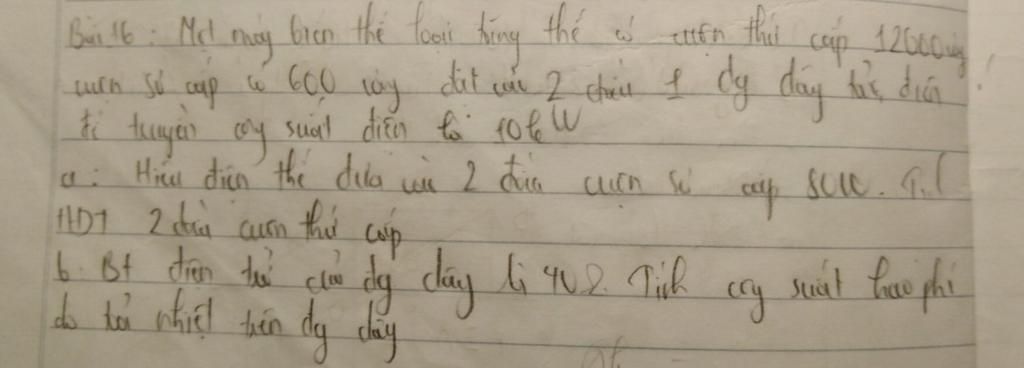 Bài 16: Một máy biến thế loại tăng thế có cuộn thứ cấp 12000 vòng
cuộn sơ cấp có 600 vòng đặt vào 2 đầu 1 dg dây tải điện
để truyền cg suất điện là 10kW
a: Hiệu điện thế đưa vào 2 đầu cuộn sơ cấp 800V. Tính
HĐT 2 đầu cuộn thứ cấp
b. Bt điện trở của dg dây là 40Ω. Tính cg suất hao phí
do tỏa nhiệt trên dg dây